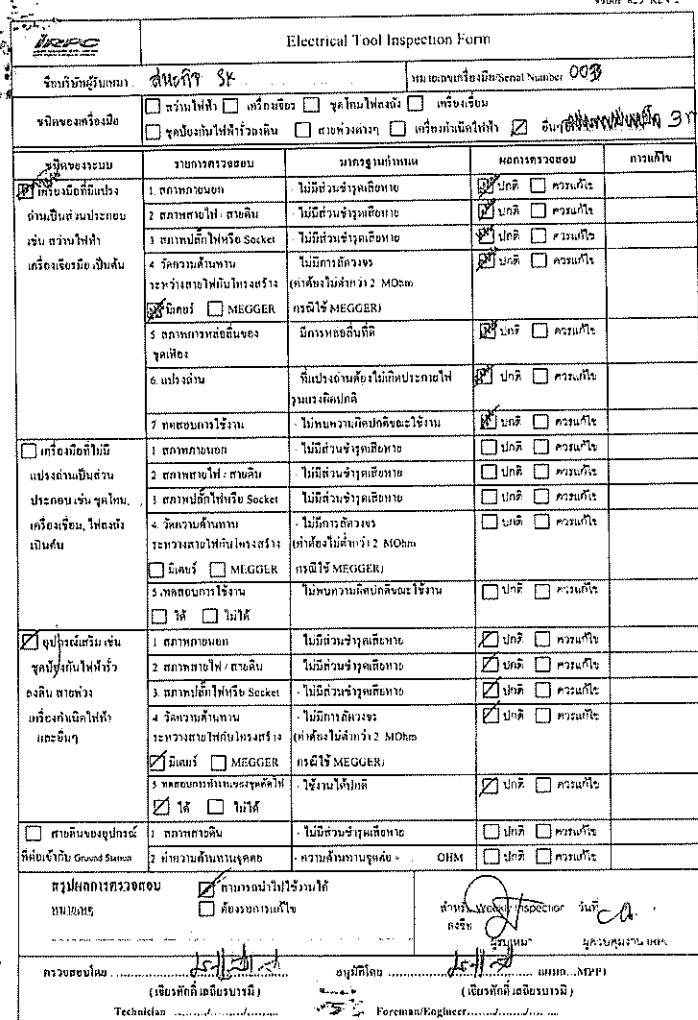 IRPC
Electrical Tool Inspection Form
ชื่อบริษัทผู้รับเหมา สหะกิจ SK
หมายเลขเครื่องมือ/Serial Number
ชนิดของเครื่องมือ
สว่านไฟฟ้า เครื่องเจียร ชุดโคมไฟส่องถัง เครื่องเชื่อม
ชุดป้องกันไฟฟ้ารั่วลงดิน สายพ่วงต่างๆ เครื่องกำเนิดไฟฟ้า อื่นๆ
ชนิดของระบบ รายการตรวจสอบ มาตรฐานกำหนด ผลการตรวจสอบ การแก้ไข
เครื่องมือที่มีแปรง
ถ่านเป็นส่วนประกอบ
เช่น สว่านไฟฟ้า
เครื่องเจียรมือ เป็นต้น
1. สภาพภายนอก - ไม่มีส่วนชำรุดเสียหาย ปกติ ควรแก้ไข
2 สภาพสายไฟ / สายดิน - ไม่มีส่วนชำรุดเสียหาย ปกติ ควรแก้ไข
3 สภาพปลั๊กไฟหรือ Socket - ไม่มีส่วนชำรุดเสียหาย ปกติ ควรแก้ไข
4 วัดความต้านทาน - ไม่มีการลัดวงจร ปกติ ควรแก้ไข
ระหว่างสายไฟกับโครงสร้าง (ค่าต้องไม่ต่ำกว่า 2 MOhm
มิเตอร์ MEGGER กรณีใช้ MEGGER)
5 สภาพการหล่อลื่นของ มีการหล่อลื่นที่ดี ปกติ ควรแก้ไข
ชุดเฟือง
6. แปรงถ่าน ที่แปรงถ่านต้องไม่เกิดประกายไฟ ปกติ ควรแก้ไข
รุนแรงผิดปกติ
7 ทดสอบการใช้งาน - ไม่พบความผิดปกติขณะใช้งาน ปกติ ควรแก้ไข
เครื่องมือที่ไม่มี
แปรงถ่านเป็นส่วน
ประกอบ เช่น ชุดโคม,
เครื่องเชื่อม, ไฟส่องถัง
เป็นต้น
1 สภาพภายนอก - ไม่มีส่วนชำรุดเสียหาย ปกติ ควรแก้ไข
2 สภาพสายไฟ / สายดิน - ไม่มีส่วนชำรุดเสียหาย ปกติ ควรแก้ไข
3 สภาพปลั๊กไฟหรือ Socket - ไม่มีส่วนชำรุดเสียหาย ปกติ ควรแก้ไข
4. วัดความต้านทาน - ไม่มีการลัดวงจร ปกติ ควรแก้ไข
ระหวางสายไฟกับโครงสร้าง (ค่าต้องไม่ต่ำกว่า 2 MOhm
มิเตอร์ MEGGER กรณีใช้ MEGGER)
5.ทดสอบการใช้งาน ไม่พบความผิดปกติขณะใช้งาน ปกติ ควรแก้ไข
ได้ ไม่ได้
อุปกรณ์เสริม เช่น
ชุดป้องกันไฟฟ้ารั่ว
ลงดิน สายพ่วง
เครื่องกำเนิดไฟฟ้า
และอื่นๆ
1 สภาพภายนอก ไม่มีส่วนชำรุดเสียหาย ปกติ ควรแก้ไข
2 สภาพสายไฟ / สายดิน - ไม่มีส่วนชำรุดเสียหาย ปกติ ควรแก้ไข
3. สภาพปลั๊กไฟหรือ Socket - ไม่มีส่วนชำรุดเสียหาย ปกติ ควรแก้ไข
4 วัดความต้านทาน - ไม่มีการลัดวงจร ปกติ ควรแก้ไข
ระหวางสายไฟกับโครงสร้าง (ค่าต้องไม่ต่ำกว่า 2 MOhm
มิเตอร์ MEGGER กรณีใช้ MEGGER)
5 ทดสอบการทำงานของชุดตัดไฟ - ใช้งานได้ปกติ ปกติ ควรแก้ไข
ได้ ไม่ได้
สายดินของอุปกรณ์
ที่ต่อเข้ากับ Ground Station
1 สภาพสายดิน - ไม่มีส่วนชำรุดเสียหาย ปกติ ควรแก้ไข
2 ค่าความต้านทานจุดต่อ - ความต้านทานจุดต่อ = OHM ปกติ ควรแก้ไข
สรุปผลการตรวจสอบ สามารถนำไปใช้งานได้
หมายเหตุ ต้องรอการแก้ไข
สำหรับ Weekly Inspection วันที่
ลงชื่อ
ผู้รับเหมา ผู้ควบคุมงาน
ตรวจสอบโดย อนุมัติโดย แผนก
(เธียรศักดิ์ เสถียรบารมี) (เธียรศักดิ์ เสถียรบารมี)
Technician ......../......../........ Foreman/Engineer......../......../........